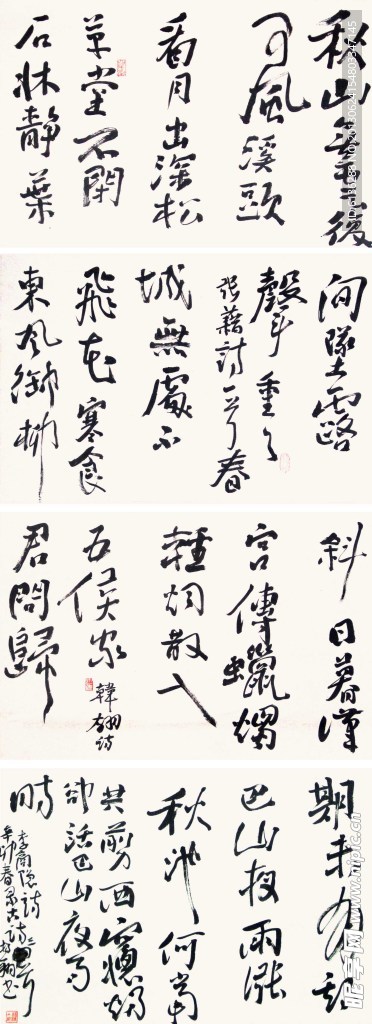 秋山無雲復
無風溪頭
看月出深松
草堂不閉
石牀靜葉
間墜露
聲重々
張藉詩一首 春
城無處不
飛花寒食
東風御柳
斜日暮漢
宮傳蠟燭
輕烟散入
五侯家
韓翃詩
君問歸
期未有期
巴山夜雨漲
秋池何當
共剪西窻燭
卻話巴山夜雨
時
李商隱詩
辛卯春录古詩三首
昵享网 www.nipic.cn